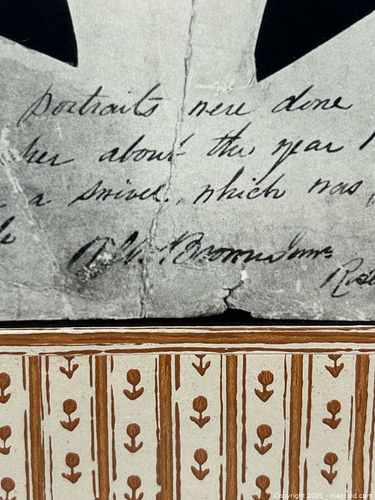 portraits were done
her about the year 1
a swivel, which was
Copyright 2025 - maxsold.com